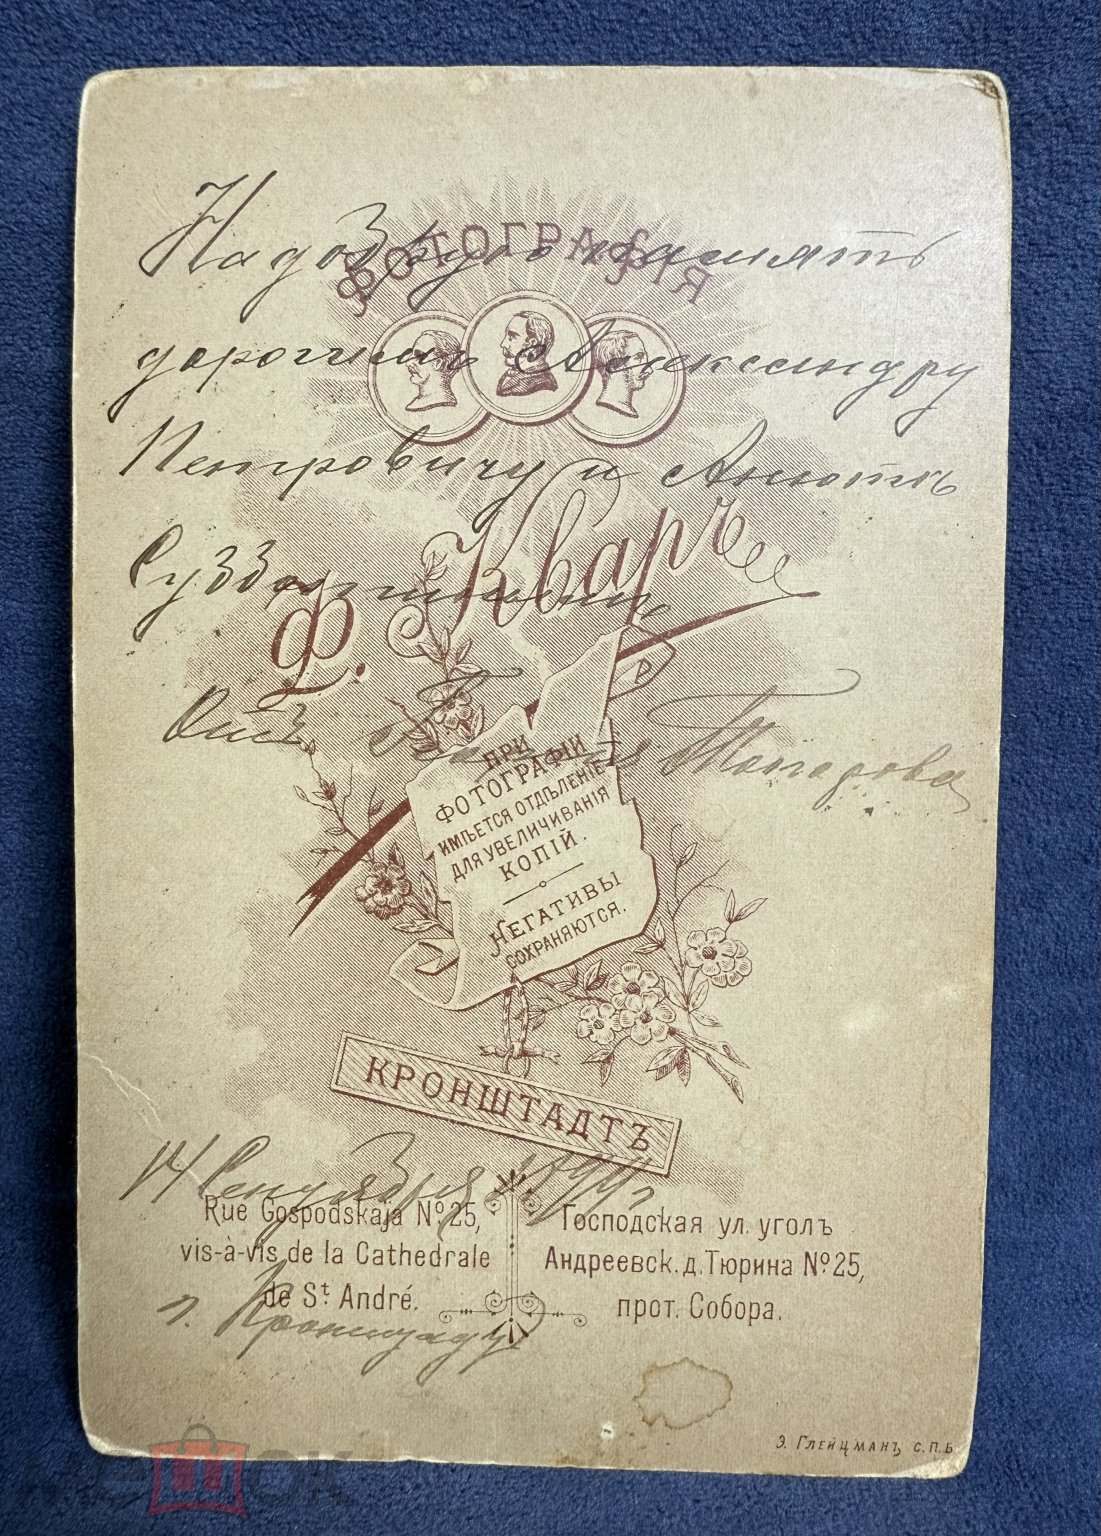 На добрую память
ФОТОГРАФІЯ
дорогимъ Александру
Петровичу и Анютѣ
Ф. Кваръ
Отъ
ПРИ
ФОТОГРАФІИ
ИМѢЕТСЯ ОТДѢЛЕНІЕ
ДЛЯ УВЕЛИЧИВАНІЯ
КОПІЙ.
НЕГАТИВЫ
СОХРАНЯЮТСЯ.
КРОНШТАДТЪ
14 Сентября 1899 г
Rue Gospodskaja № 25,
vis-à-vis de la Cathedrale
de St André.
Господская ул. уголъ
Андреевск. д. Тюрина № 25,
прот. Собора.
г. Кронштадтъ
Э. Глейцманъ С.П.Б
мешок